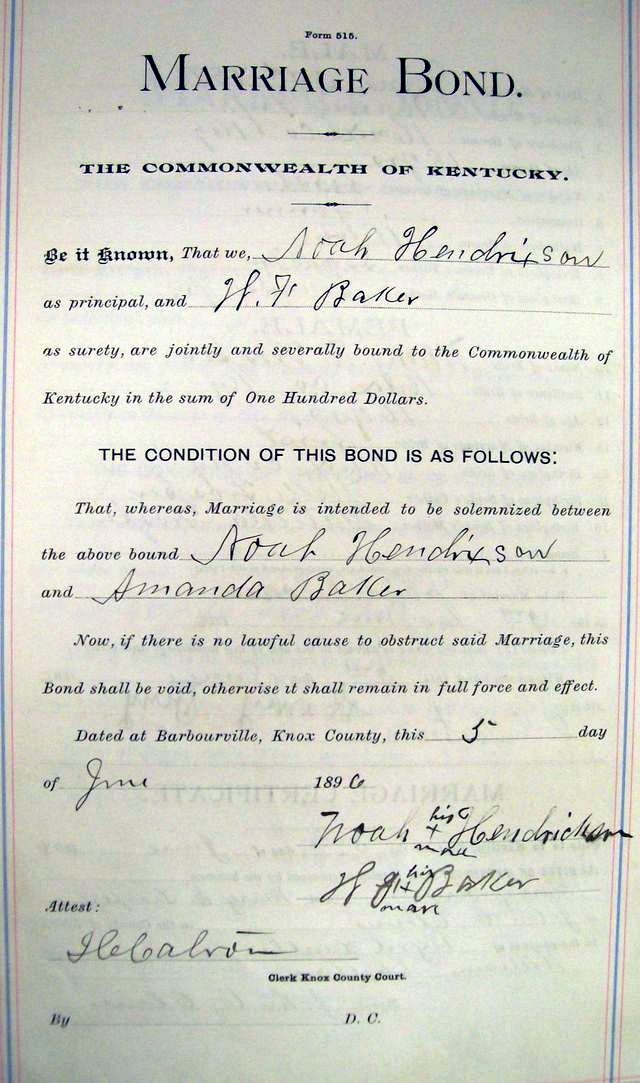 Form 515.
MARRIAGE BOND.
THE COMMONWEALTH OF KENTUCKY.
Be it Known, That we, Noah Hendrixson
as principal, and W. F. Baker
as surety, are jointly and severally bound to the Commonwealth of
Kentucky in the sum of One Hundred Dollars.
THE CONDITION OF THIS BOND IS AS FOLLOWS:
That, whereas, Marriage is intended to be solemnized between
the above bound Noah Hendrixson
and Amanda Baker
Now, if there is no lawful cause to obstruct said Marriage, this
Bond shall be void, otherwise it shall remain in full force and effect.
Dated at Barbourville, Knox County, this 5 day
of June 1896
his
Noah + Hendrickson
mark
his
W + Baker
mark
Attest:
Clerk Knox County Court.
By D. C.